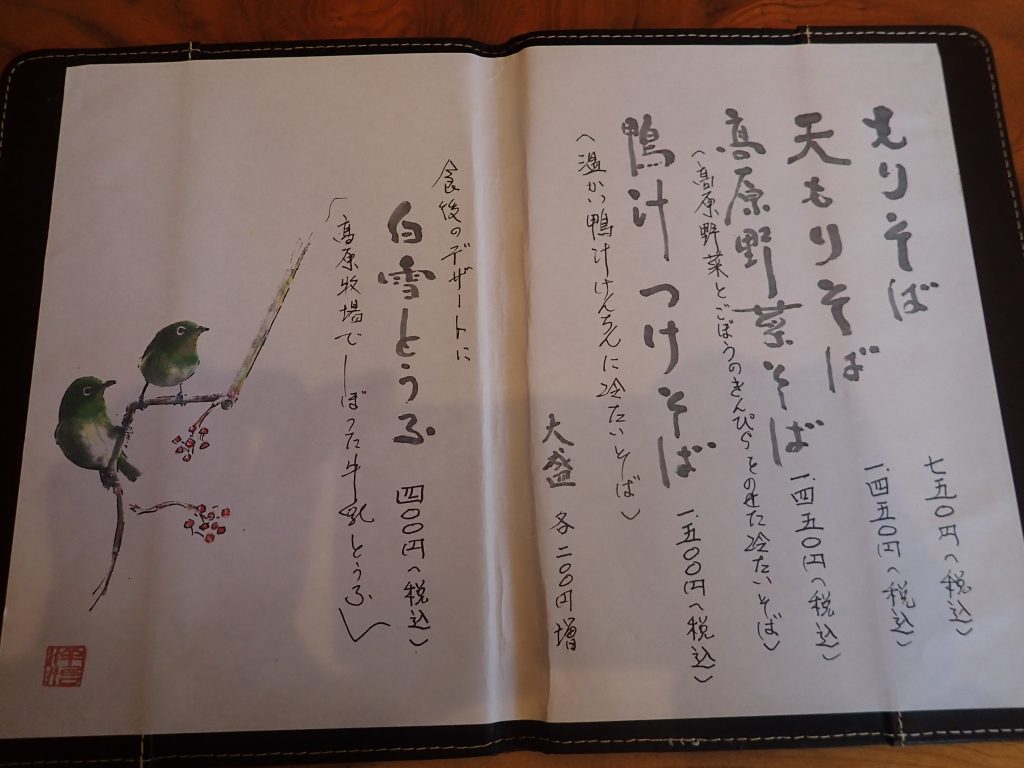 もりそば 七五〇円(税込)
天もりそば 一、四五〇円(税込)
高原野菜そば 一、四五〇円(税込)
(高原野菜とごぼうのきんぴらをのせた冷たいそば)
鴨汁つけそば 一、五〇〇円(税込)
(温かい鴨汁けんちんに冷たいそば)
大盛 各二〇〇円増
食後のデザートに
白雪とうふ 四〇〇円(税込)
「高原牧場でしぼった牛乳とうふ」